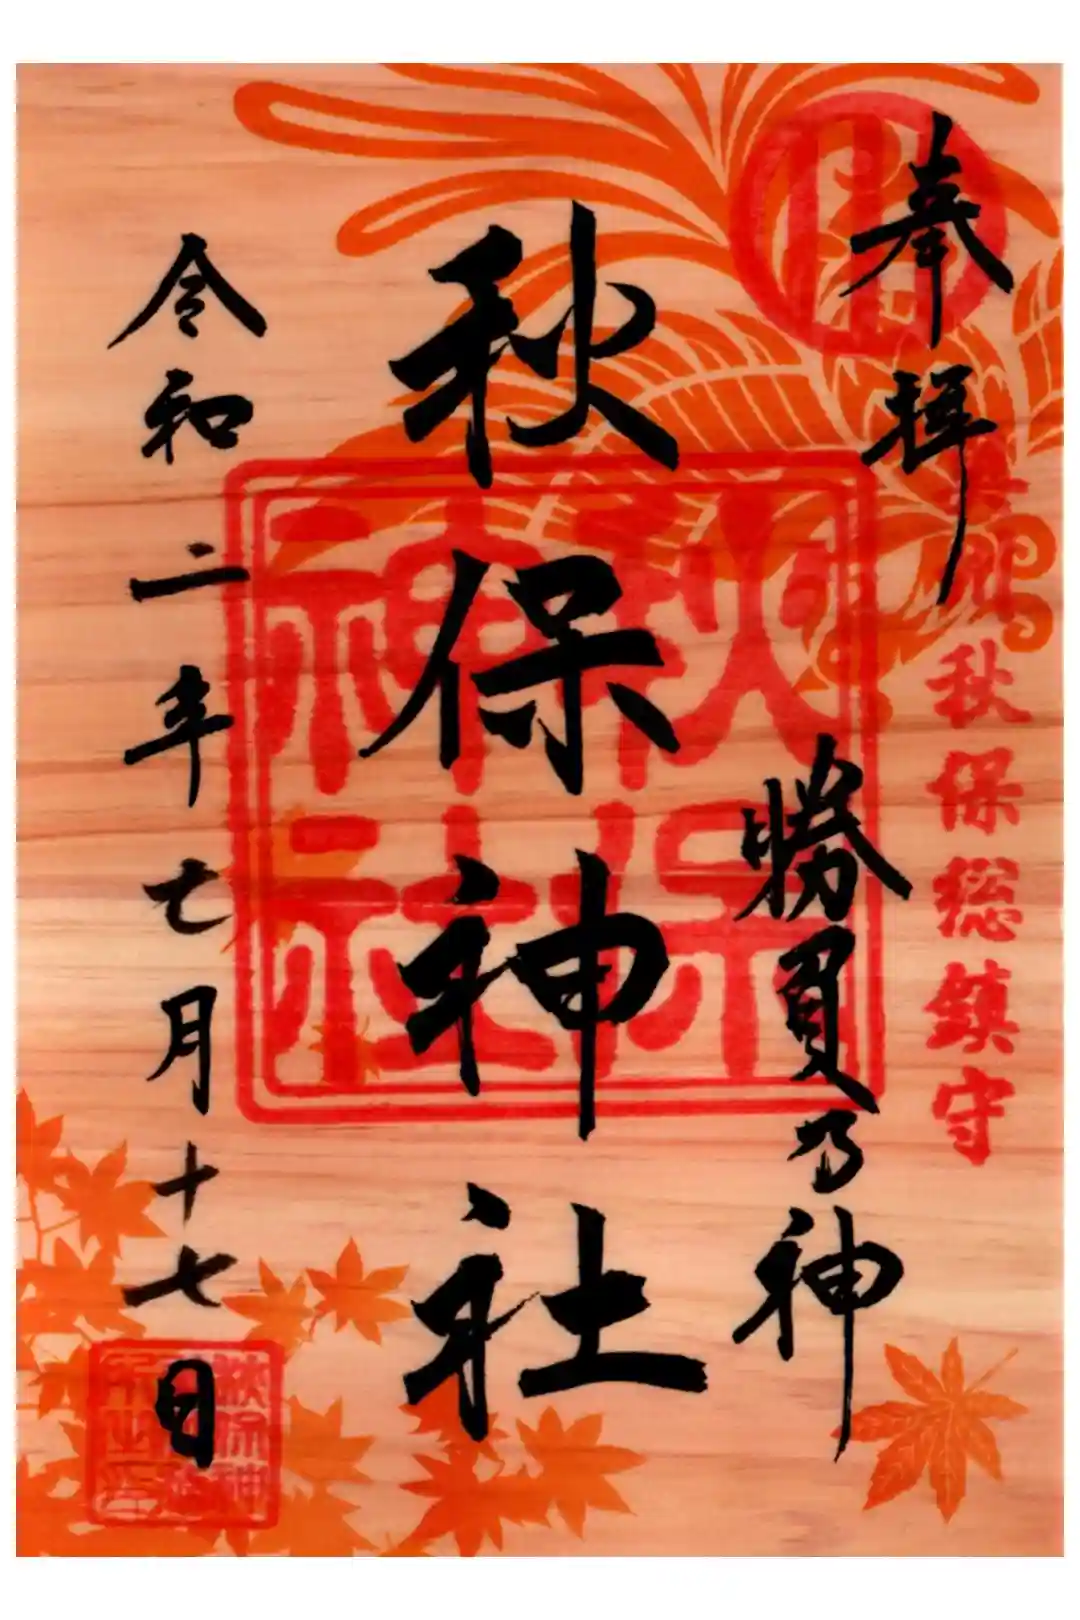 奉拝
奥州秋保総鎮守
勝負乃神
秋保神社
秋保神社
令和二年七月十七日